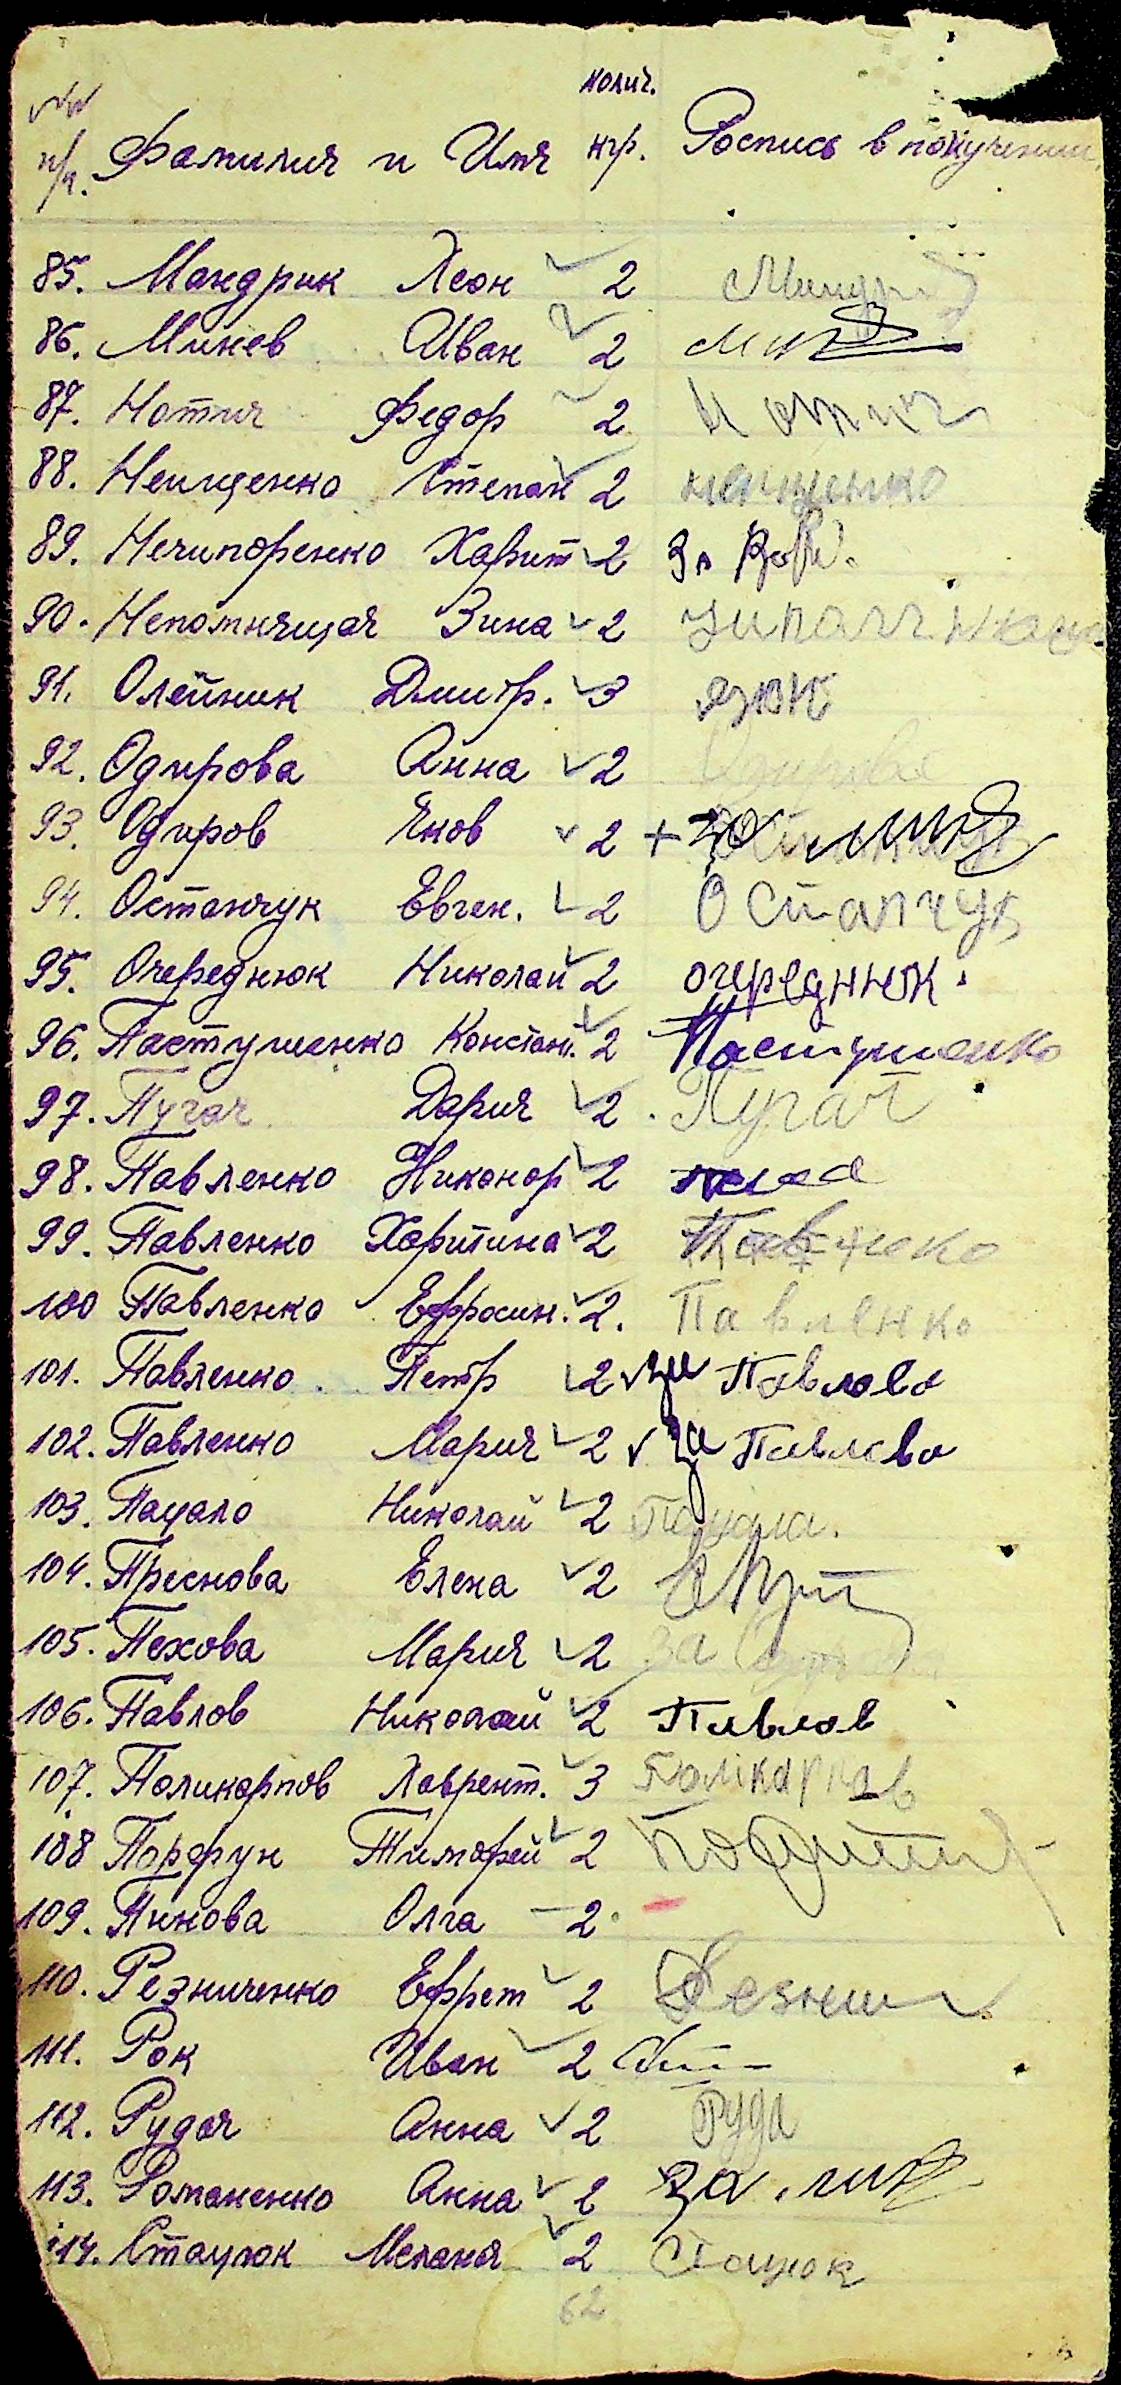 колич.
№№ п/п. Фамилия и Имя кгр. Роспись в получении
85. Мандрик Леон 2
86. Минев Иван 2
87. Нотич Федор 2 Нотич
88. Неищенко Степан 2 неищенко
89. Нечипоренко Харит 2 За
90. Непомнящая Зина 2
91. Олейник Дмитр. 3
92. Одирова Анна 2 Одирова
93. Одиров Яков 2 + за
94. Остапчук Евген. 2 Остапчук
95. Очереднюк Николай 2 очереднюк.
96. Пастушенко Констант. 2 Пастушенко
97. Пугач Дария 2. Пугач
98. Павленко Никонор 2
99. Павленко Харитина 2
100 Павленко Ефросин. 2. Павленко
101. Павленко Петр 2 за Павлова
102. Павленко Мария 2 за Павлова
103. Пацало Николай 2 Пацала.
104. Преснова Елена 2
105. Пехова Мария 2 за
106. Павлов Николай 2 Павлов
107. Поликарпов Лаврент. 3 Полікарпов
108 Порфун Тимофей 2
109. Пинова Олга – 2.
110. Резниченко Ефрем 2
111. Рок Иван 2
112. Рудая Анна 2 Руда
113. Романенко Анна 2 за
114. Стацюк Меланя 2 Стацюк
62